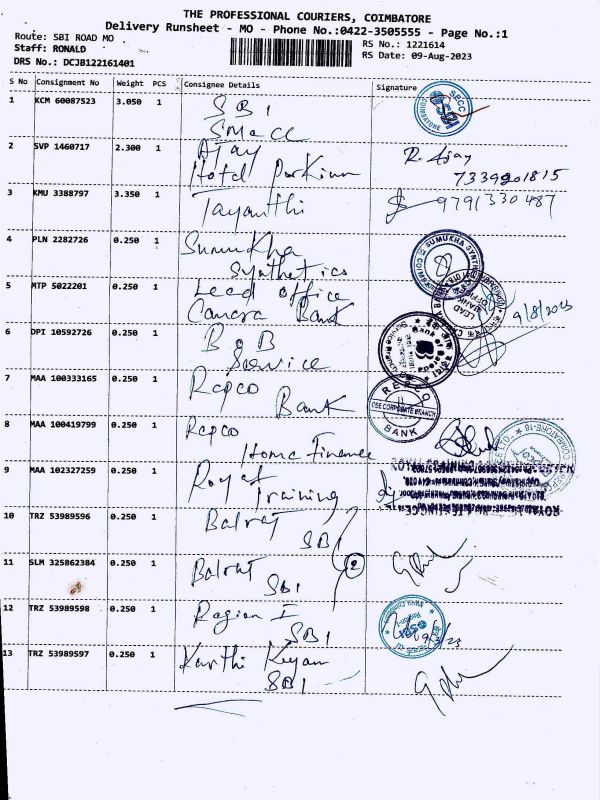 THE PROFESSIONAL COURIERS, COIMBATORE
Delivery Runsheet - MO - Phone No.:0422-3505555 - Page No.:1
Route: SBI ROAD MO
RS No.: 1221614
Staff: RONALD
RS Date: 09-Aug-2023
DRS No.: DCJB122161401
S No Consignment No Weight PCS Consignee Details Signature
1 KCM 60087523 3.050 1 SBI
SMECC
2 SVP 1460717 2.300 1 Ajay R. Ajay
Hotel 7339201815
3 KMU 3388797 3.350 1 Jayanthi 9791330487
4 PLN 2282726 0.250 1 Sumukha
Synthetics
5 MTP 5022201 0.250 1 Lead office
Canara Bank 9/8/2023
6 DPI 10592726 0.250 1 BOB
Service
7 MAA 100333165 0.250 1 Repco
Bank
REPCO
CBE CORPORATE BRANCH
BANK
8 MAA 100419799 0.250 1 Repco
Home Finance
9 MAA 102327259 0.250 1 Royal
Training
10 TRZ 53989596 0.250 1 Balraj
SBI
11 SLM 325862384 0.250 1 Balraj
SBI
2
12 TRZ 53989598 0.250 1 Region I
SBI
13 TRZ 53989597 0.250 1 Karthikeyan
SBI